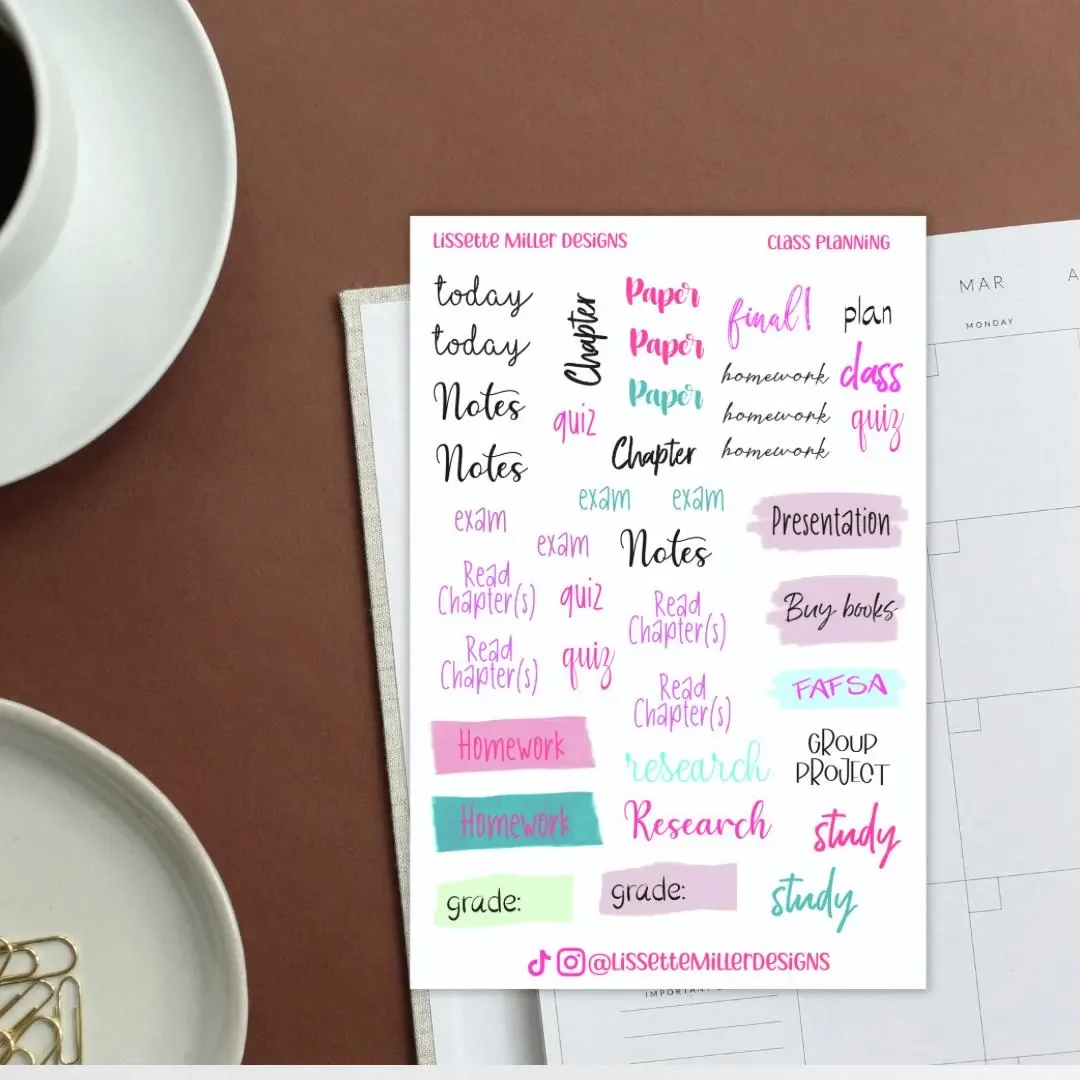 Lissette Miller Designs
Class Planning
today
today
Notes
Notes
Chapter
quiz
Paper
Paper
Paper
Chapter
final!
homework
homework
homework
plan
class
quiz
exam
exam
exam
exam
Notes
Read
Chapter(s)
quiz
Read
Chapter(s)
quiz
Read
Chapter(s)
Read
Chapter(s)
Presentation
Buy books
FAFSA
GROUP
PROJECT
Homework
Homework
research
Research
study
study
grade:
grade:
@LissetteMillerDesigns
MAR
MONDAY